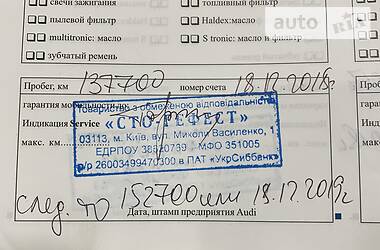 свечи зажигания
топливный фильтр
auto RIA
пылевой фильтр
Haldex:масло
multitronic: масло
S tronic: масло и фильтр
зубчатый ремень
Пробег, км 137700 номер счета 18.12.2018г
гарантия мобильности до
Товариство з обмеженою відповідальністю
Индикация Service «СТО-ГЕФЕСТ»
макс. км. 03113, м. Київ, вул. Миколи Василенко, 1
ЄДРПОУ 38520769 МФО 351005
р/р 26003499470300 в ПАТ «УкрСиббанк»
след. ТО 152700 или 18.12.2019г
Дата, штамп предприятия Audi